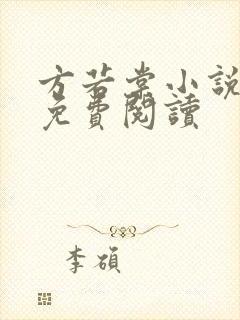 方若棠小說
免費閱讀
李碩